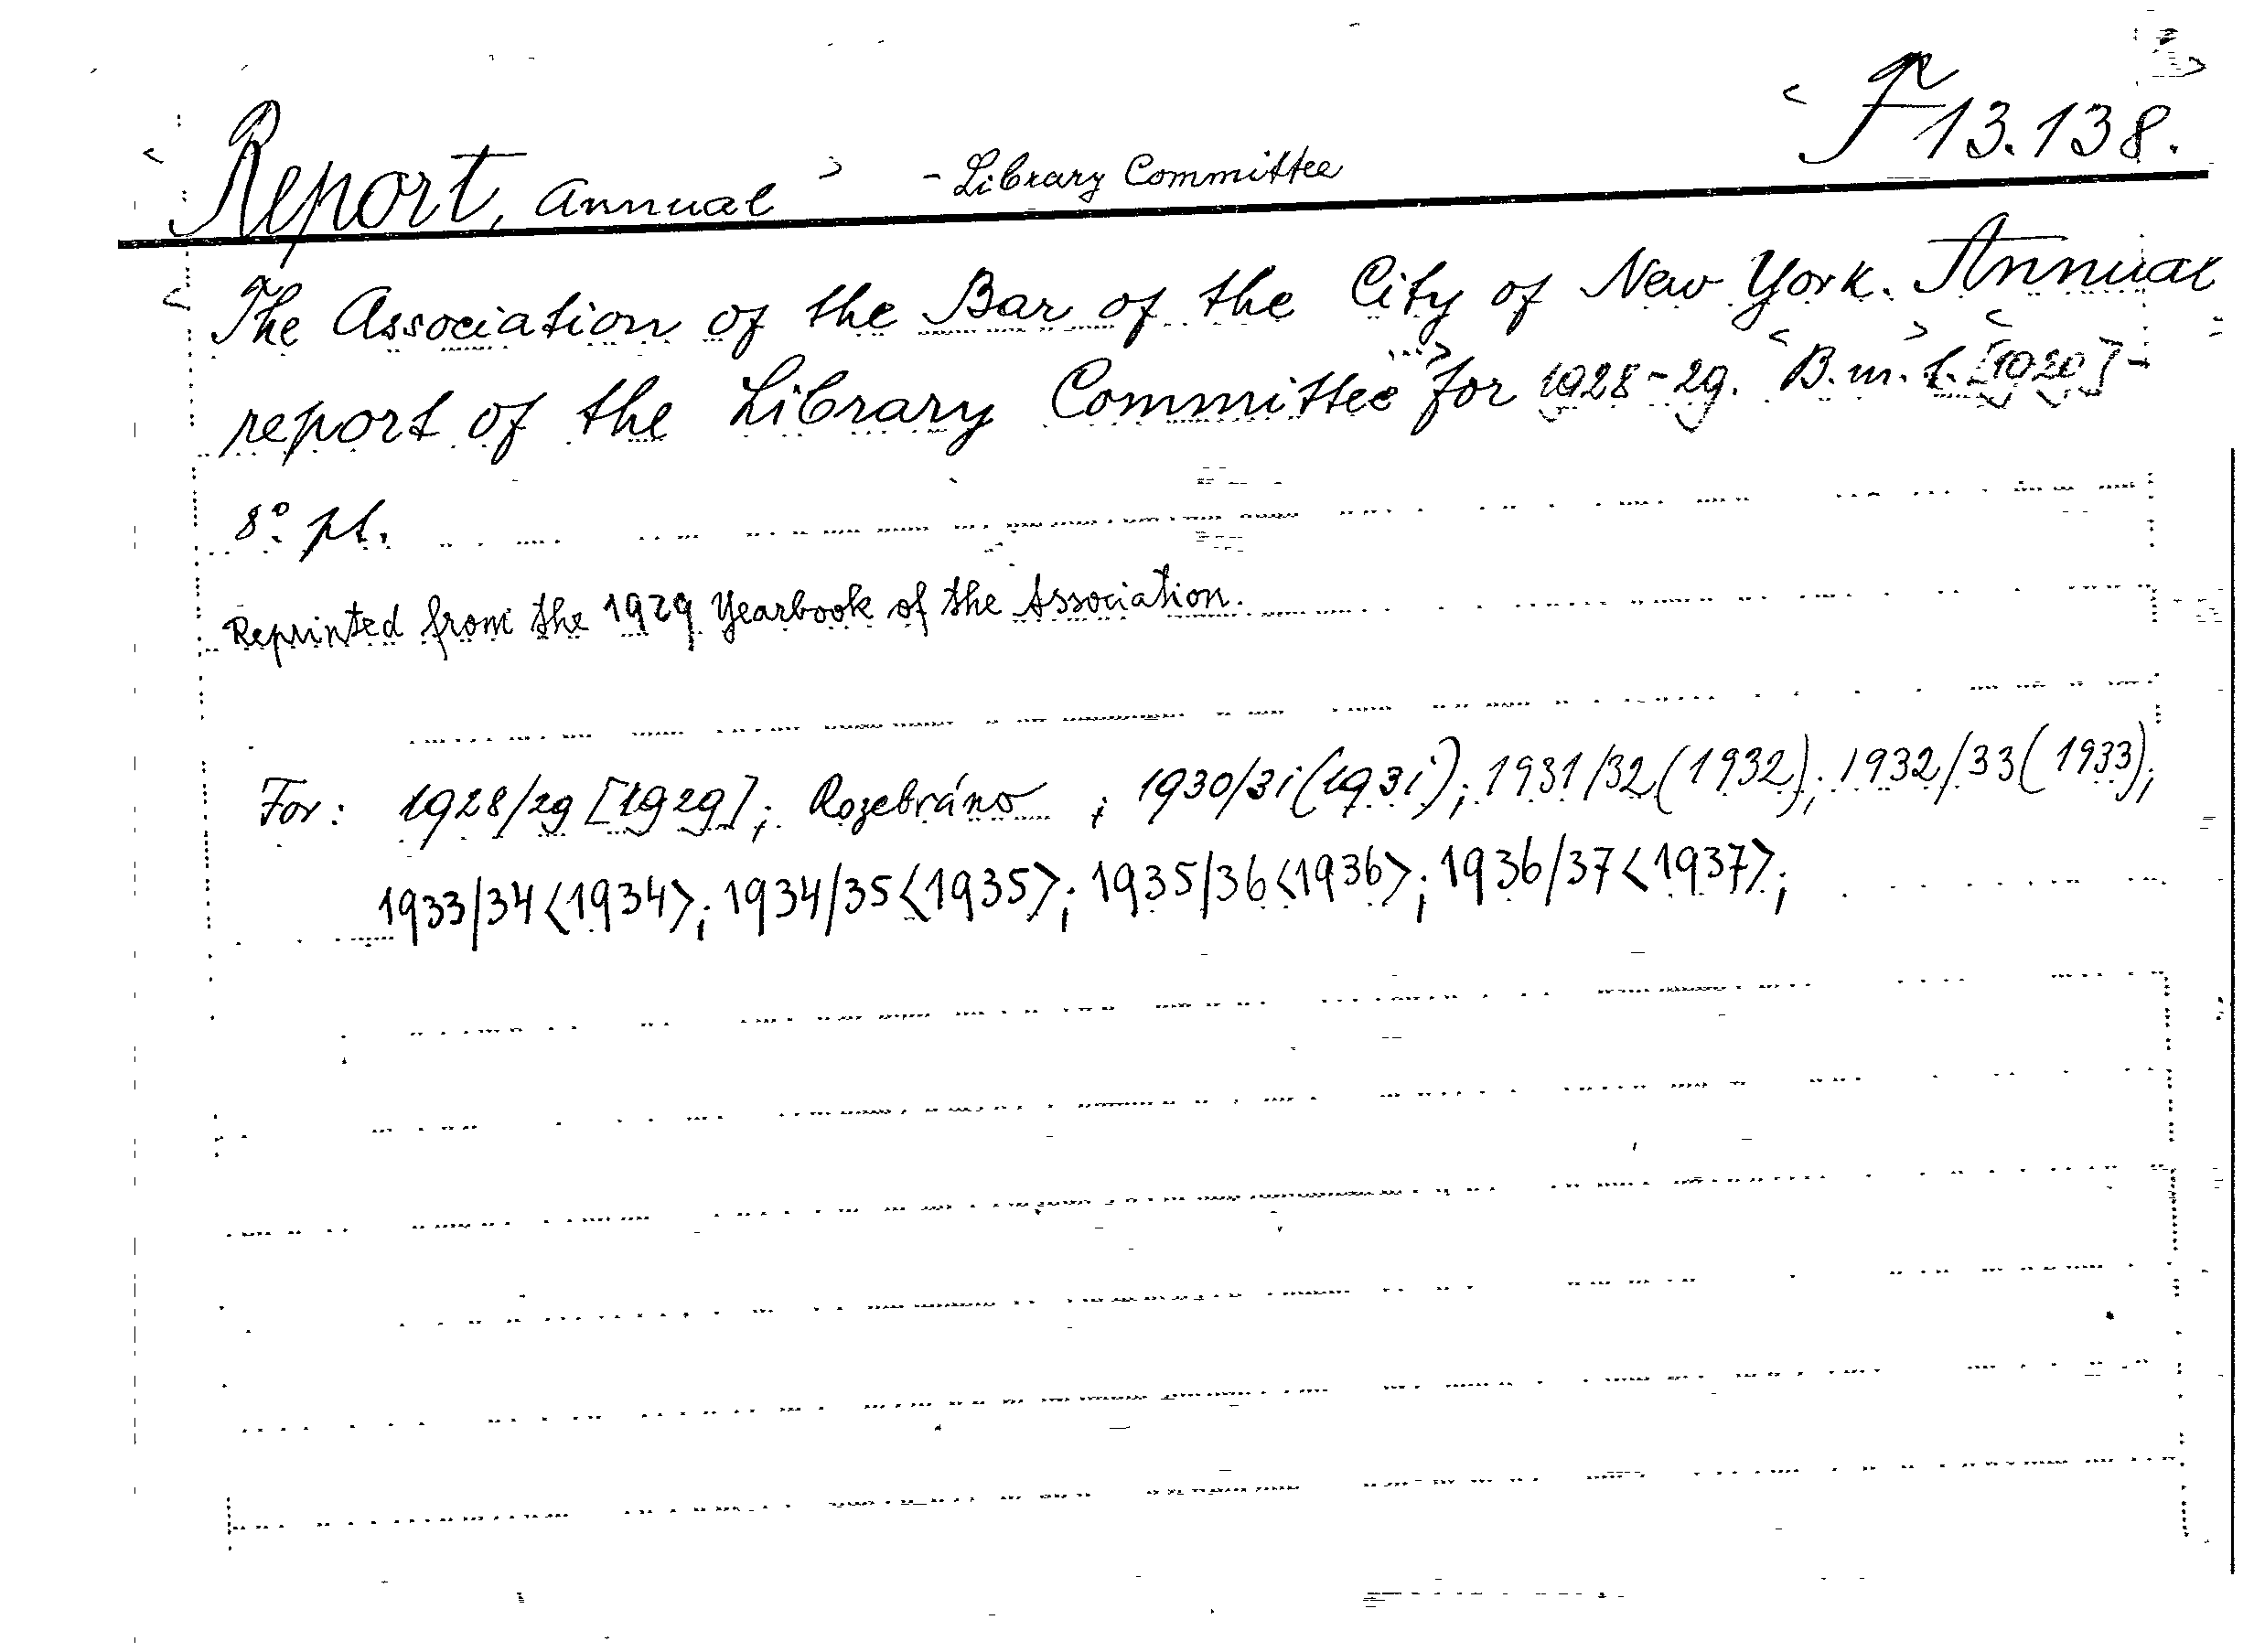 < Report, annual > - Library Committee
< F 13.138.
< The Association of the Bar of the City of New York. Annual
report of the Library Committee ...> for 1928-29. <B.m.> l. <[1929]-
8° pl.
Reprinted from the 1929 Yearbook of the Association.
For: 1928/29 [1929]; Rozebráno ; 1930/31 (1931); 1931/32 (1932); 1932/33 (1933);
1933/34 <1934>; 1934/35 <1935>; 1935/36 <1936>; 1936/37 <1937>;